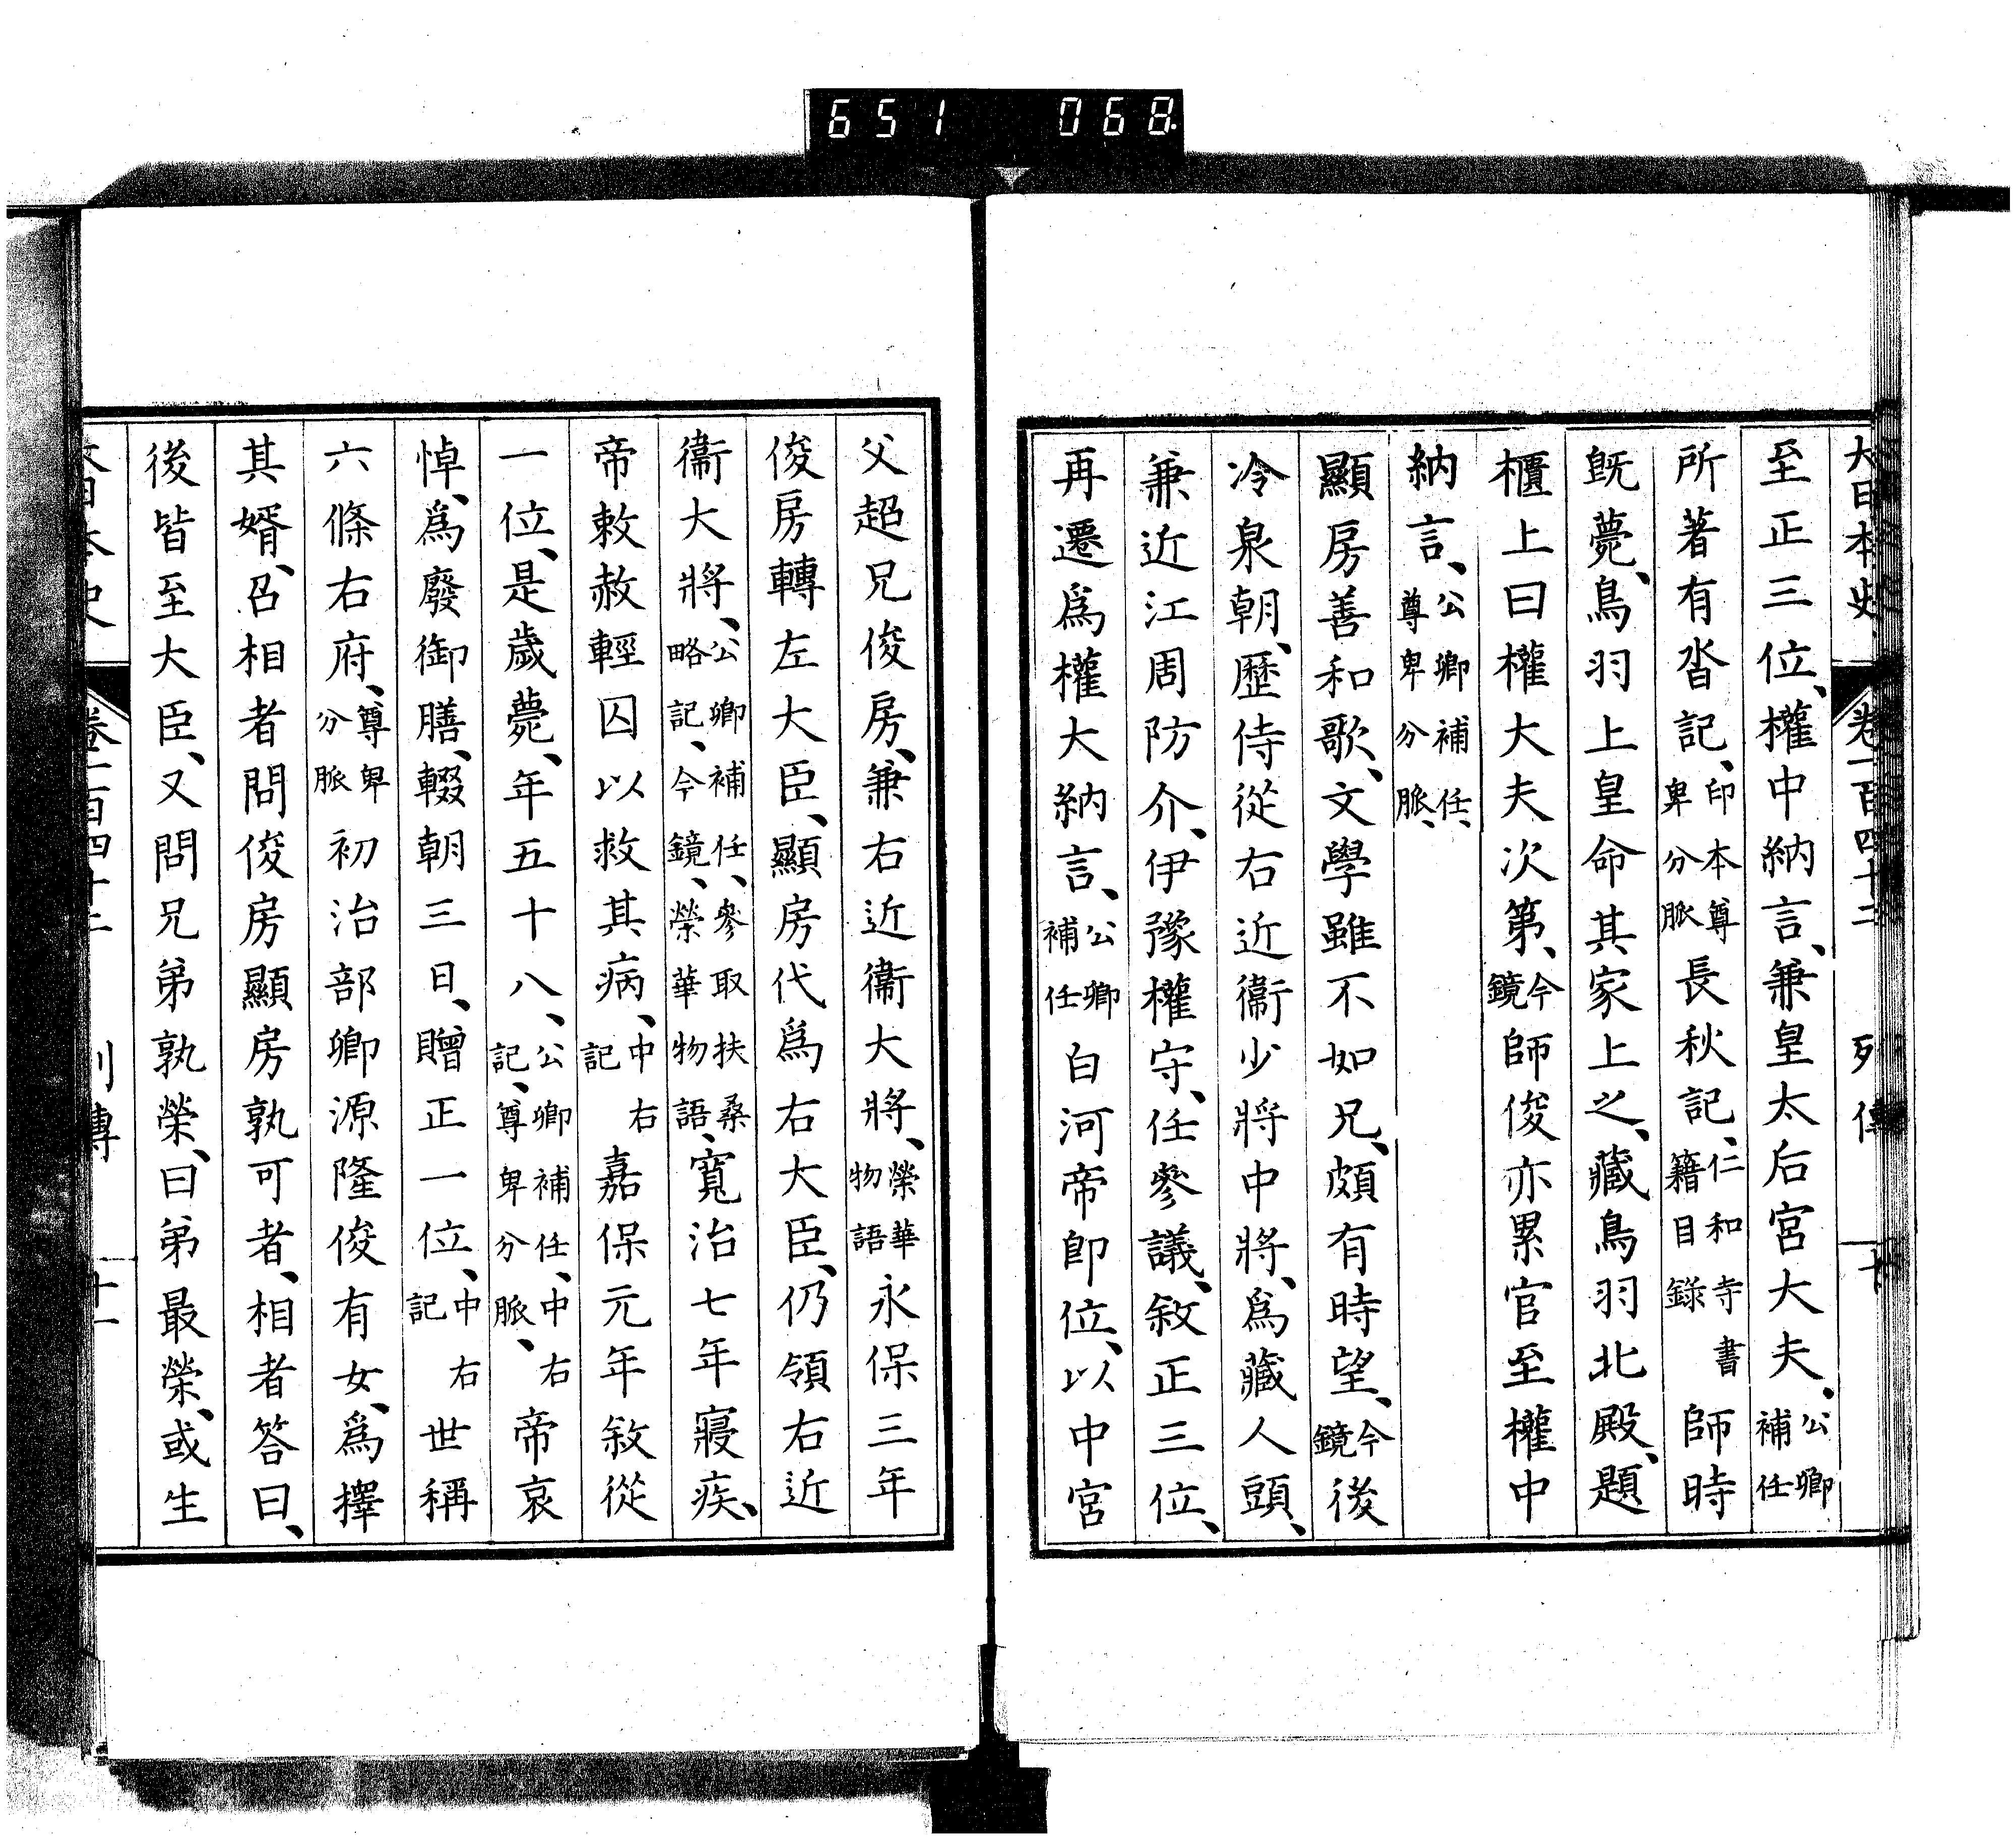 651 068
大日本史 卷一百四十二 列傳 十
至正三位、權中納言、兼皇太后宮大夫、公卿補任
所著有沓記、印本尊卑分脈長秋記、仁和寺書籍目錄師時
既薨、鳥羽上皇命其家上之、藏鳥羽北殿、題
櫃上曰權大夫次第、今鏡師俊亦累官至權中
納言、公卿補任、尊卑分脈、
顯房善和歌、文學雖不如兄、頗有時望、今鏡後
冷泉朝、歷侍從右近衞少將中將、爲藏人頭、
兼近江周防介、伊豫權守、任參議、敘正三位、
再遷爲權大納言、公卿補任白河帝卽位、以中宮
父超兄俊房、兼右近衞大將、榮華物語永保三年
俊房轉左大臣、顯房代爲右大臣、仍領右近
衞大將、公卿補任、參取扶桑略記、今鏡、榮華物語、寬治七年寢疾、
帝敕赦輕囚以救其病、中右記嘉保元年敘從
一位、是歲薨、年五十八、公卿補任、中右記、尊卑分脈、帝哀
悼、爲廢御膳、輟朝三日、贈正一位、中右記世稱
六條右府、尊卑分脈初治部卿源隆俊有女、爲擇
其婿、召相者問俊房顯房孰可者、相者答曰、
後皆至大臣、又問兄弟孰榮、曰弟最榮、或生
大日本史 卷一百四十二 列傳 十一